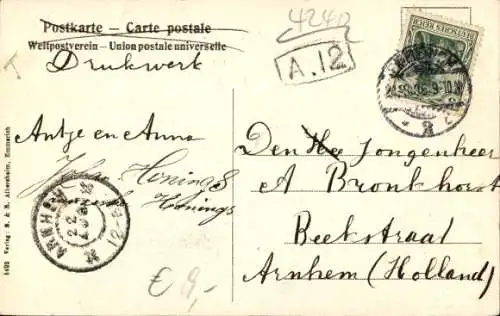 Postkarte — Carte postale
Weltpostverein – Union postale universelle
Drukwerk
4240
A.12
DEUTSCHES REICH
Antje en Anna
Honings
Honings
ARNHEM
Den Hee Jongenheer
A Bronkhorst
Beekstraat
Arnhem (Holland)
€ 9,-
Verlag: R. & R. Altenheim, Emmerich